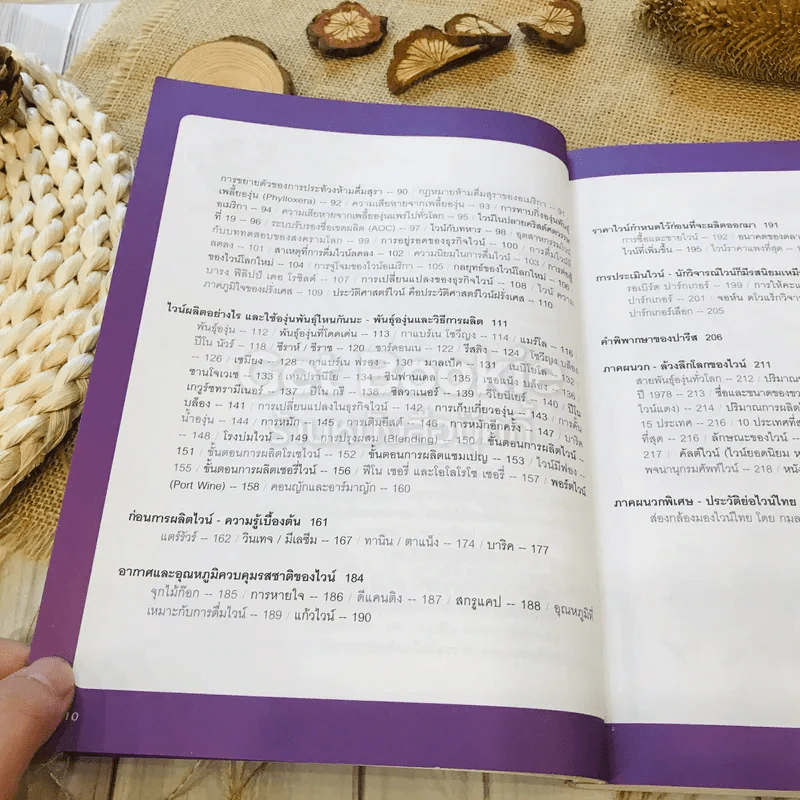 การขยายตัวของการประท้วงห้ามดื่มสุรา -- 90 / กฎหมายห้ามดื่มสุราของอเมริกา -- 91
เพลี้ยองุ่น (Phylloxera) -- 92 / ความเสียหายจากเพลี้ยองุ่น -- 93 / การทาบกิ่งองุ่นพันธุ์
อเมริกา -- 94 / ความเสียหายจากเพลี้ยองุ่นแพร่ไปทั่วโลก -- 95 / ไวน์ในปลายคริสต์ศตวรรษ
ที่ 19 -- 96 / ระบบรับรองชื่อเขตผลิต (AOC) -- 97 / ไวน์กับทหาร -- 98 / อุตสาหกรรมไวน์
กับบททดสอบของสงครามโลก -- 99 / การอยู่รอดของธุรกิจไวน์ -- 100 / การดื่มไวน์
ลดลง -- 101 / สาเหตุที่การดื่มไวน์ลดลง -- 102 / ความนิยมในการดื่มไวน์ -- 103 / การต่อสู้
ของไวน์โลกใหม่ -- 104 / การจู่โจมของไวน์อเมริกา -- 105 / กลยุทธ์ของไวน์โลกใหม่ -- 106
บารง ฟิลิปป์ เดอ โรธิลด์ -- 107 / การเปลี่ยนแปลงของธุรกิจไวน์ -- 108 / ไวน์ ความ
ภาคภูมิใจของฝรั่งเศส -- 109 / ประวัติศาสตร์ไวน์ คือประวัติศาสตร์ไวน์ฝรั่งเศส -- 110
ไวน์ผลิตอย่างไร และใช้องุ่นพันธุ์ไหนกันนะ - พันธุ์องุ่นและวิธีการผลิต 111
พันธุ์องุ่น -- 112 / พันธุ์องุ่นที่โดดเด่น -- 113 / กาแบร์เน โซวีญง -- 114 / แมร์โล -- 116 /
ปีโน นัวร์ -- 118 / ซีราห์ / ชีราซ -- 120 / ชาร์ดอนเน -- 122 / รีสลิง -- 124 / โซวีญง บล็อง
-- 126 / เซมียง -- 128 / กาแบร์เน ฟรอง -- 130 / มาลเบ็ค -- 131 / เนบิโอโล -- 132
ซานโจเวเซ -- 133 / เทมปรานีโย -- 134 / ซินฟานเดล -- 135 / เชอแน็ง บล็อง -- 136 /
เกวูร์ซทรามีเนอร์ -- 137 / ปีโน กรี -- 138 / ซิลวาเนอร์ -- 139 / วีโยนิเยร์ -- 140 / ปีโน
บล็อง -- 141 / การเปลี่ยนแปลงในธุรกิจไวน์ -- 142 / การเก็บเกี่ยวองุ่น -- 143 / การคั้น
น้ำองุ่น -- 144 / การหมัก -- 145 / การเติมยีสต์ -- 146 / การหมักอีกครั้ง -- 147 / บาริค
-- 148 / โรงบ่มไวน์ -- 149 / การปรุงผสม (Blending) -- 150 / ขั้นตอนการผลิตไวน์ --
151 / ขั้นตอนการผลิตโรเซไวน์ -- 152 / ขั้นตอนการผลิตแชมเปญ -- 153 / ไวน์มีฟอง --
155 / ขั้นตอนการผลิตเชอรี่ไวน์ -- 156 / ฟีโน เชอรี่ และโอโลโรโซ เชอรี่ -- 157 / พอร์ตไวน์
(Port Wine) -- 158 / คอนญักและอาร์มาญัก -- 160
ก่อนการผลิตไวน์ - ความรู้เบื้องต้น 161
แตร์รัวร์ -- 162 / วินเทจ / มีเลซีม -- 167 / ทานิน / ตาแน็ง -- 174 / บาริค -- 177
อากาศและอุณหภูมิควบคุมรสชาติของไวน์ 184
จุกไม้ก๊อก -- 185 / การหายใจ -- 186 / ดีแคนติง -- 187 / สกรูแคป -- 188 / อุณหภูมิที่
เหมาะกับการดื่มไวน์ -- 189 / แก้วไวน์ -- 190
10
ราคาไวน์กำหนดไว้ก่อนที่จะผลิตออกมา 191
การซื้อและขายไวน์ -- 192 / อนาคตของตลาด
ไวน์ที่เพิ่มขึ้น -- 195 / ไวน์ราคาแพงที่สุด --
การประเมินไวน์ - นักวิจารณ์ไวน์ก็มีรสนิยมเหมือ
รอเบิร์ต ปาร์กเกอร์ -- 200 / การให้คะแ
ปาร์กเกอร์ -- 201 / จอห์น ดไวแรกวิจาร
ปาร์กเกอร์เลือก -- 205
คำพิพากษาของปารีส 206
ภาคผนวก - ล้วงลึกโลกของไวน์ 211
สายพันธุ์องุ่นทั่วโลก -- 212 / ปริมาณข
ปี 1978 -- 213 / ชื่อและขนาดของขว
ไวน์แดง) -- 214 / ปริมาณการผลิตไ
15 ประเทศ -- 216 / 10 ประเทศที่ส
ที่สุด -- 216 / ลักษณะของไวน์ --
217 / คัลต์ไวน์ (ไวน์ยอดนิยม ห
พจนานุกรมศัพท์ไวน์ -- 218 / หนัง
ภาคผนวกพิเศษ - ประวัติย่อไวน์ไทย
ส่องกล้องมองไวน์ไทย โดย กมล